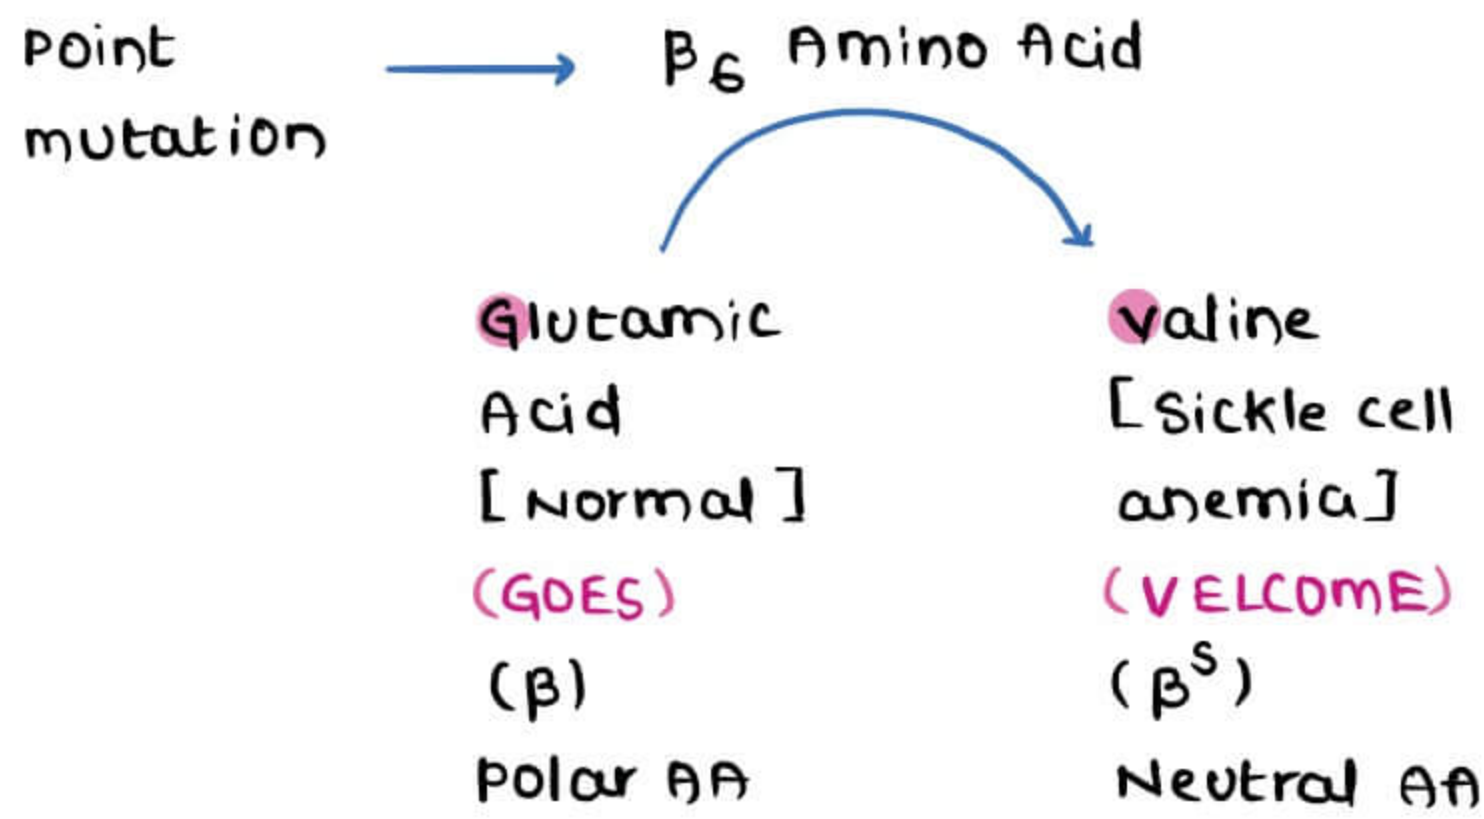 Point
mutation
β6 Amino Acid
Glutamic
Acid
[Normal]
(GOES)
(β)
Polar AA
Valine
[Sickle cell
anemia]
(VELCOME)
(βˢ)
Neutral AA